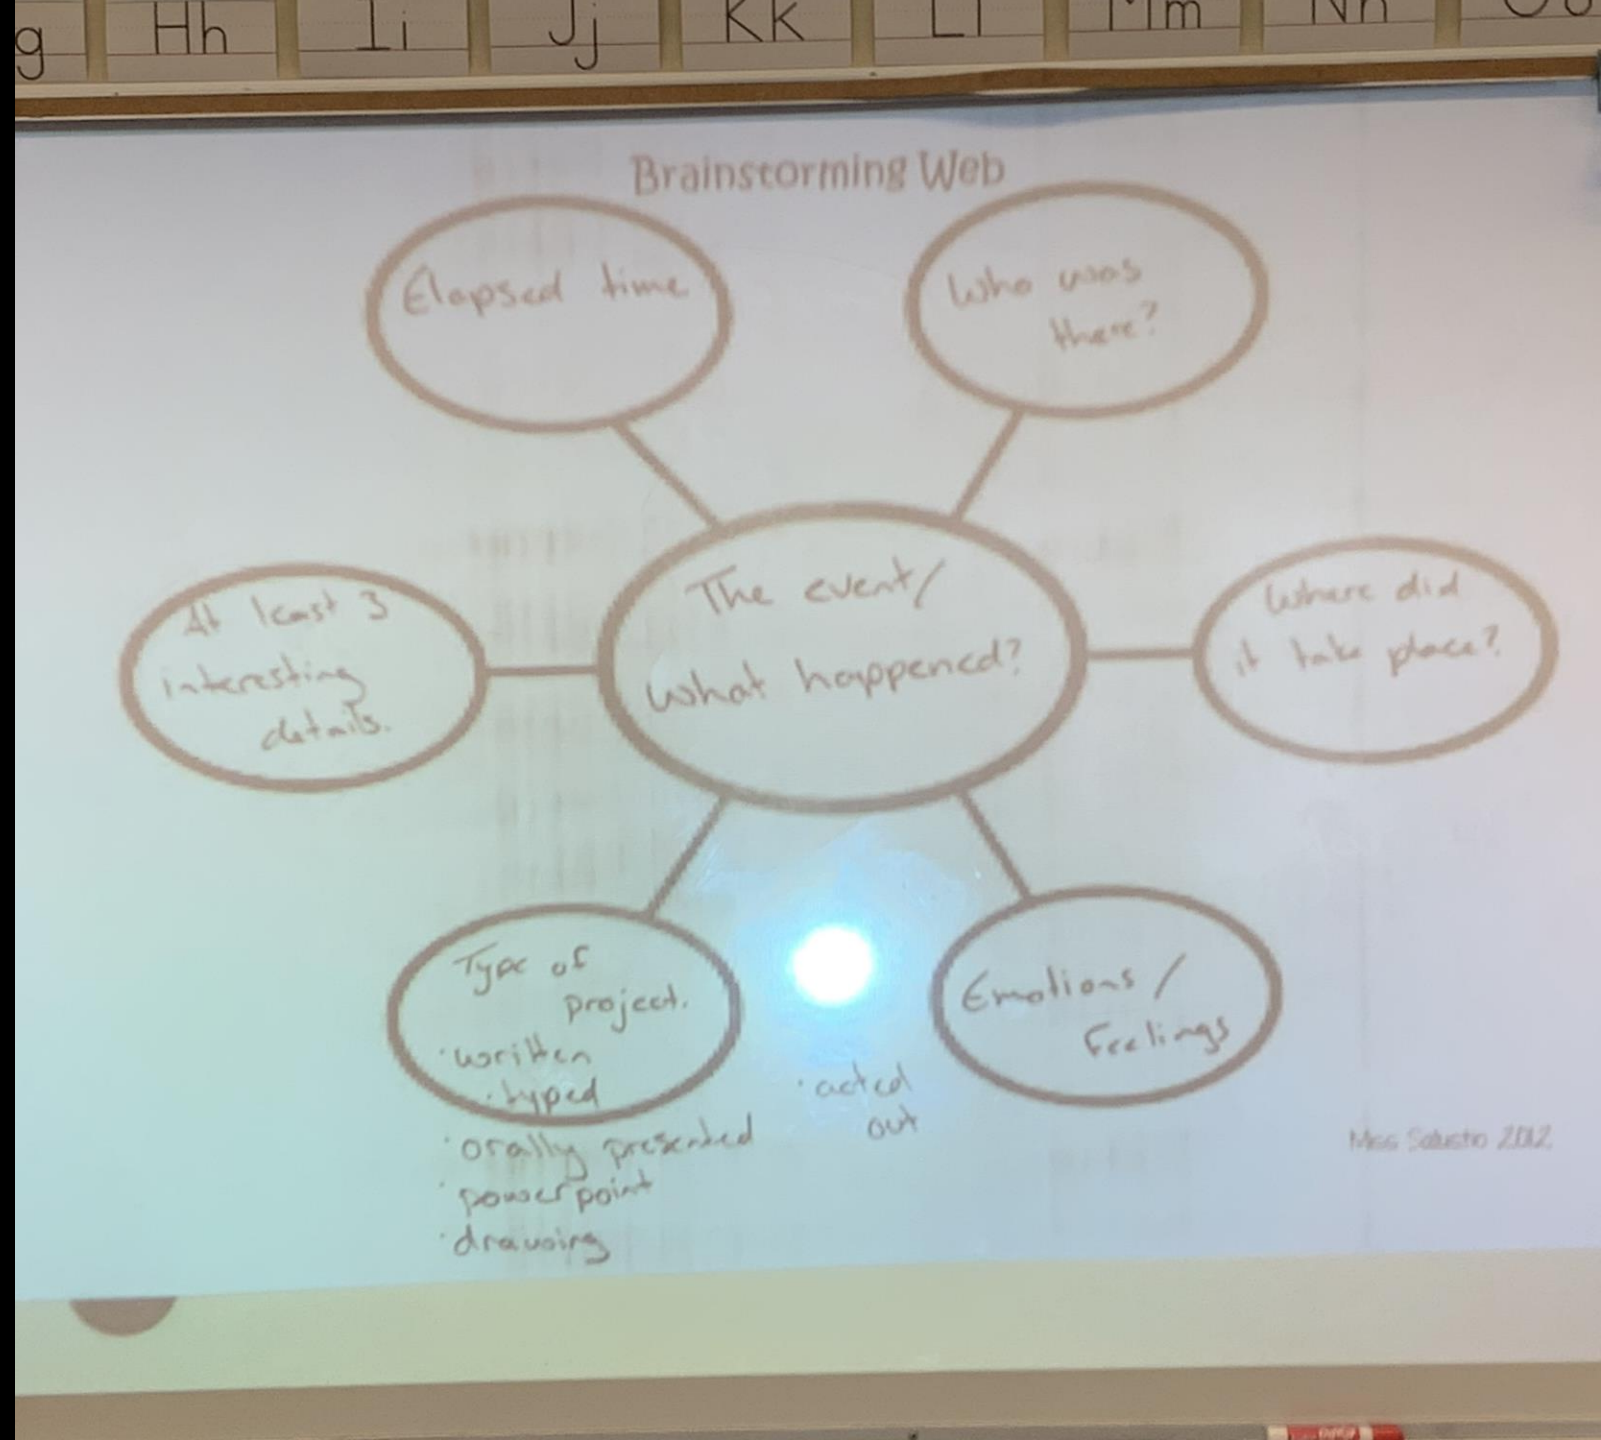 g Hh Ii Jj Kk Ll Mm Nn
Brainstorming Web
Elapsed time
Who was
there?
The event/
What happened?
At least 3
interesting
details.
Where did
it take place?
Type of
project.
·written
·typed
·orally presented
·powerpoint
·drawing
·acted
out
Emotions /
Feelings
Miss Salustio 2012